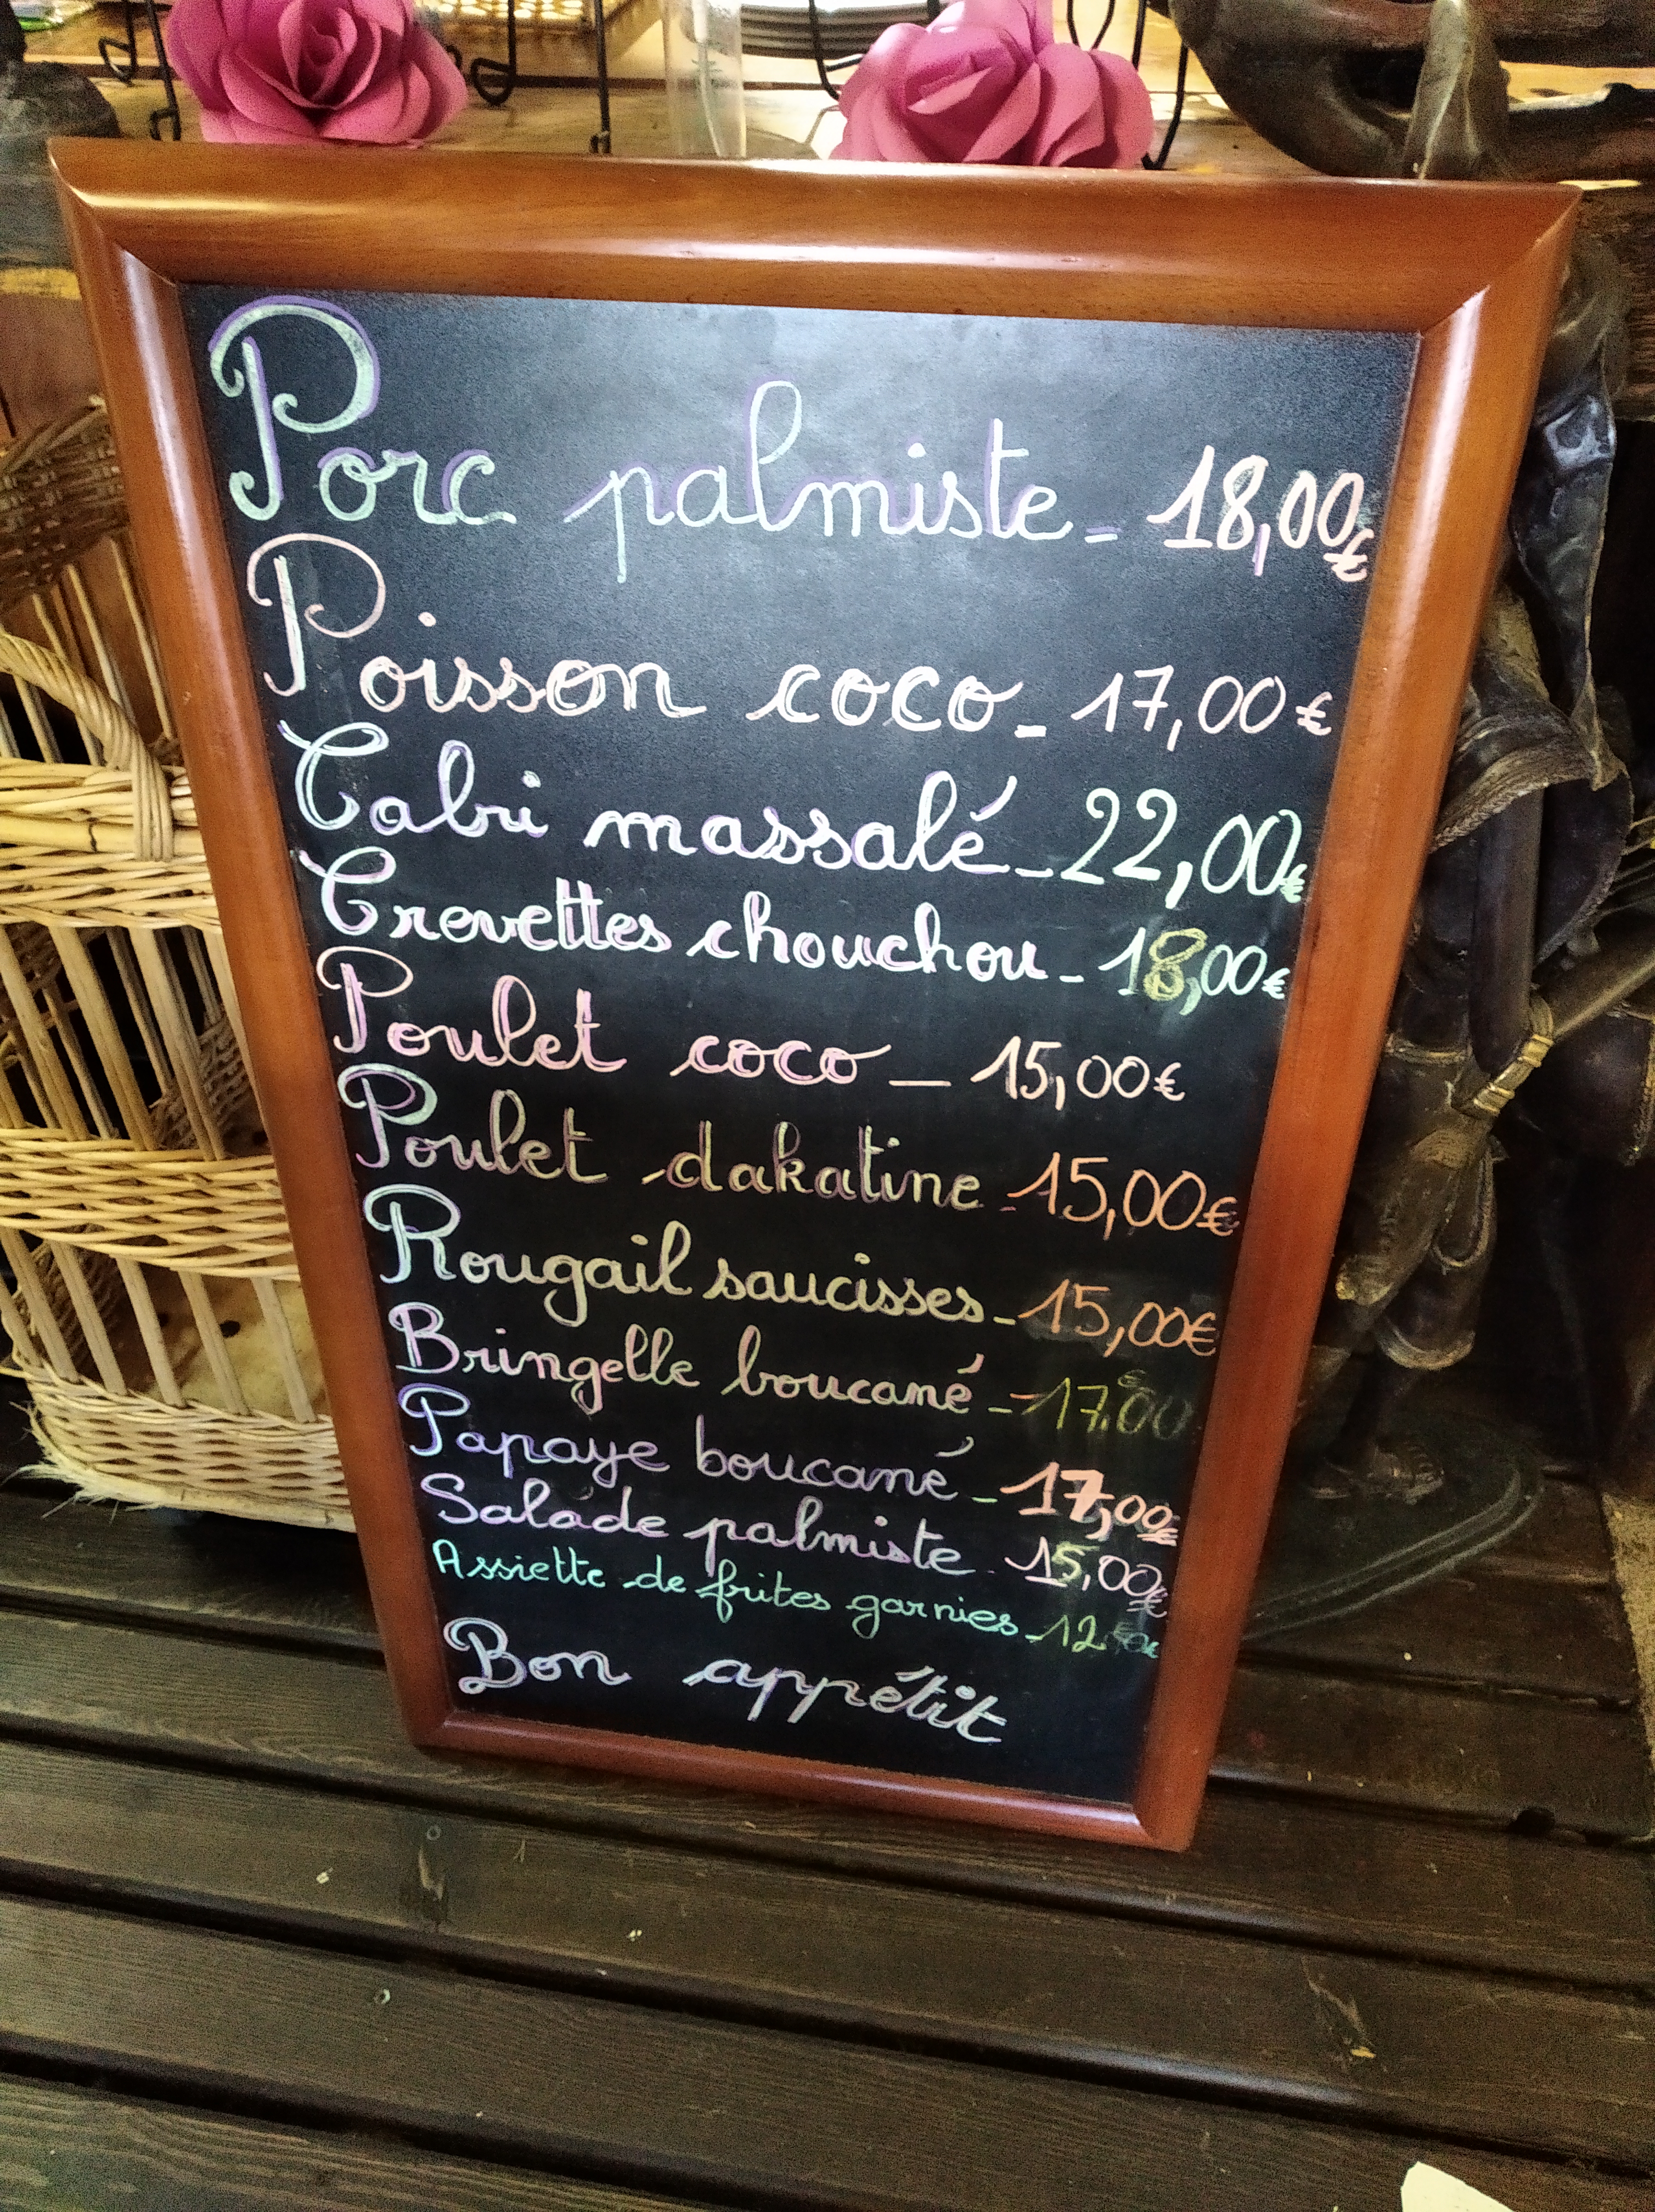 Porc palmiste - 18,00€
Poisson coco - 17,00€
Cabri massalé - 22,00€
Crevettes chouchou - 18,00€
Poulet coco - 15,00€
Poulet dakatine - 15,00€
Rougail saucisses - 15,00€
Bringelle boucané - 17,00€
Papaye boucané - 17,00€
Salade palmiste - 15,00€
Assiette de frites garnies - 12
Bon appétit